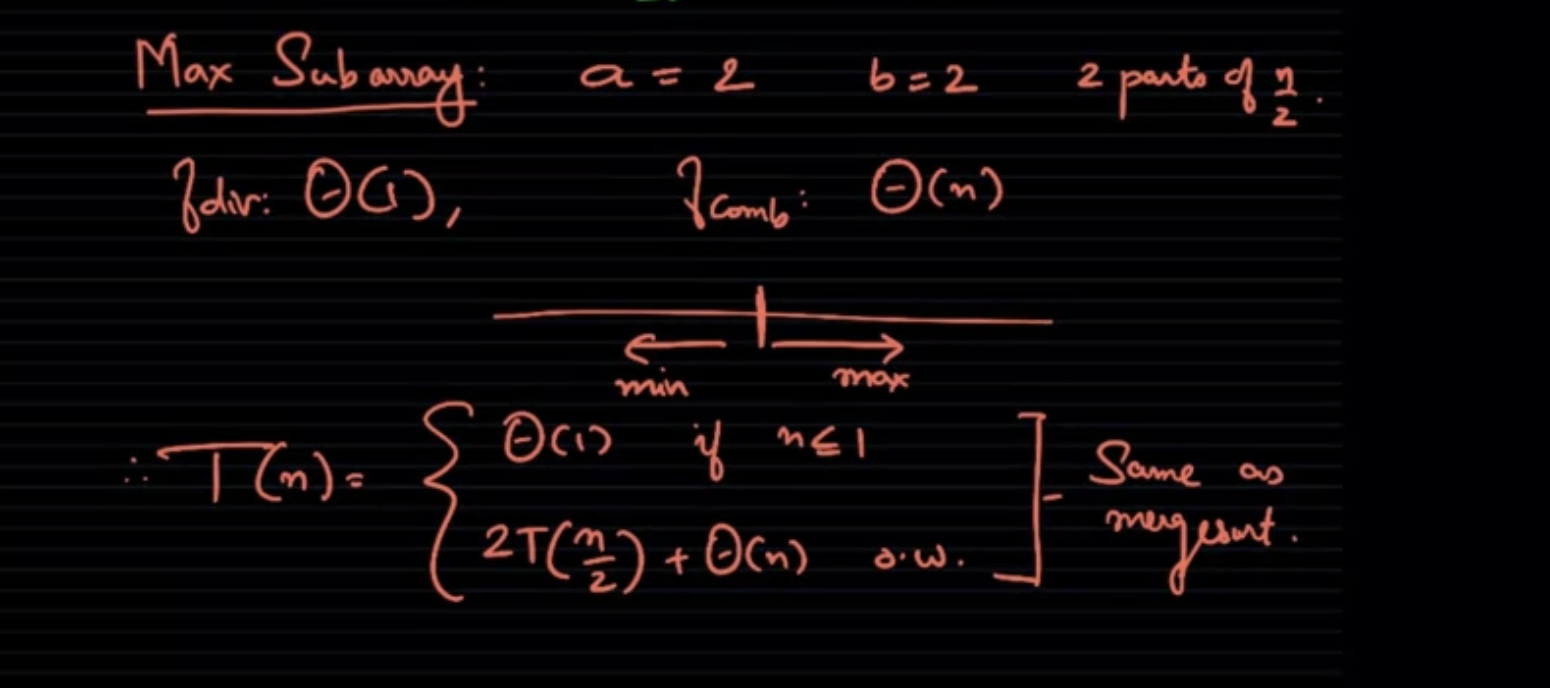 Max Subarray: a = 2 b = 2 2 parts of n/2.
f div: Θ(1), f comb: Θ(n)
min max
∴ T(n) = { Θ(1) if n ≤ 1
2T(n/2) + Θ(n) o.w. ] - Same as mergesort.